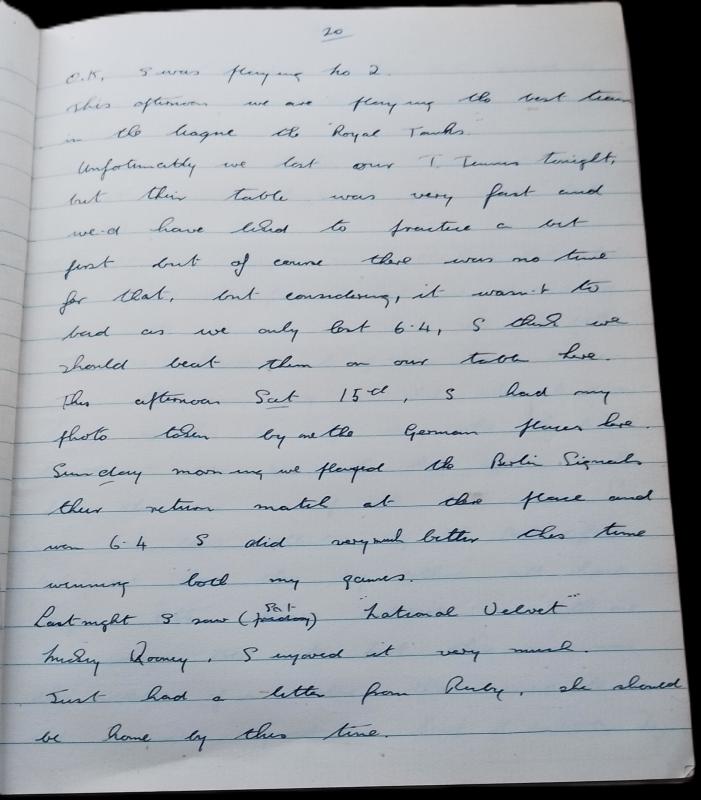 20
O.K, I was playing No 2.
This afternoon we are playing the best team
in the league the Royal Tanks.
Unfortunately we lost our T. Tennis tonight,
but their table was very fast and
we'd have liked to practice a bit
first but of course there was no time
for that, but considering, it wasn't to
bad as we only lost 6.4, I think we
should beat them on our table here.
This afternoon Sat 15th, I had my
photo taken by the German places here.
Sunday morning we played the Berlin Signals
their return match at there place and
won 6.4 I did very much better this time
winning both my games.
Last night I saw (Sat) "National Velvet"
Mickey Rooney. I enjoyed it very much.
Just had a letter from Ruby, she should
be home by this time.